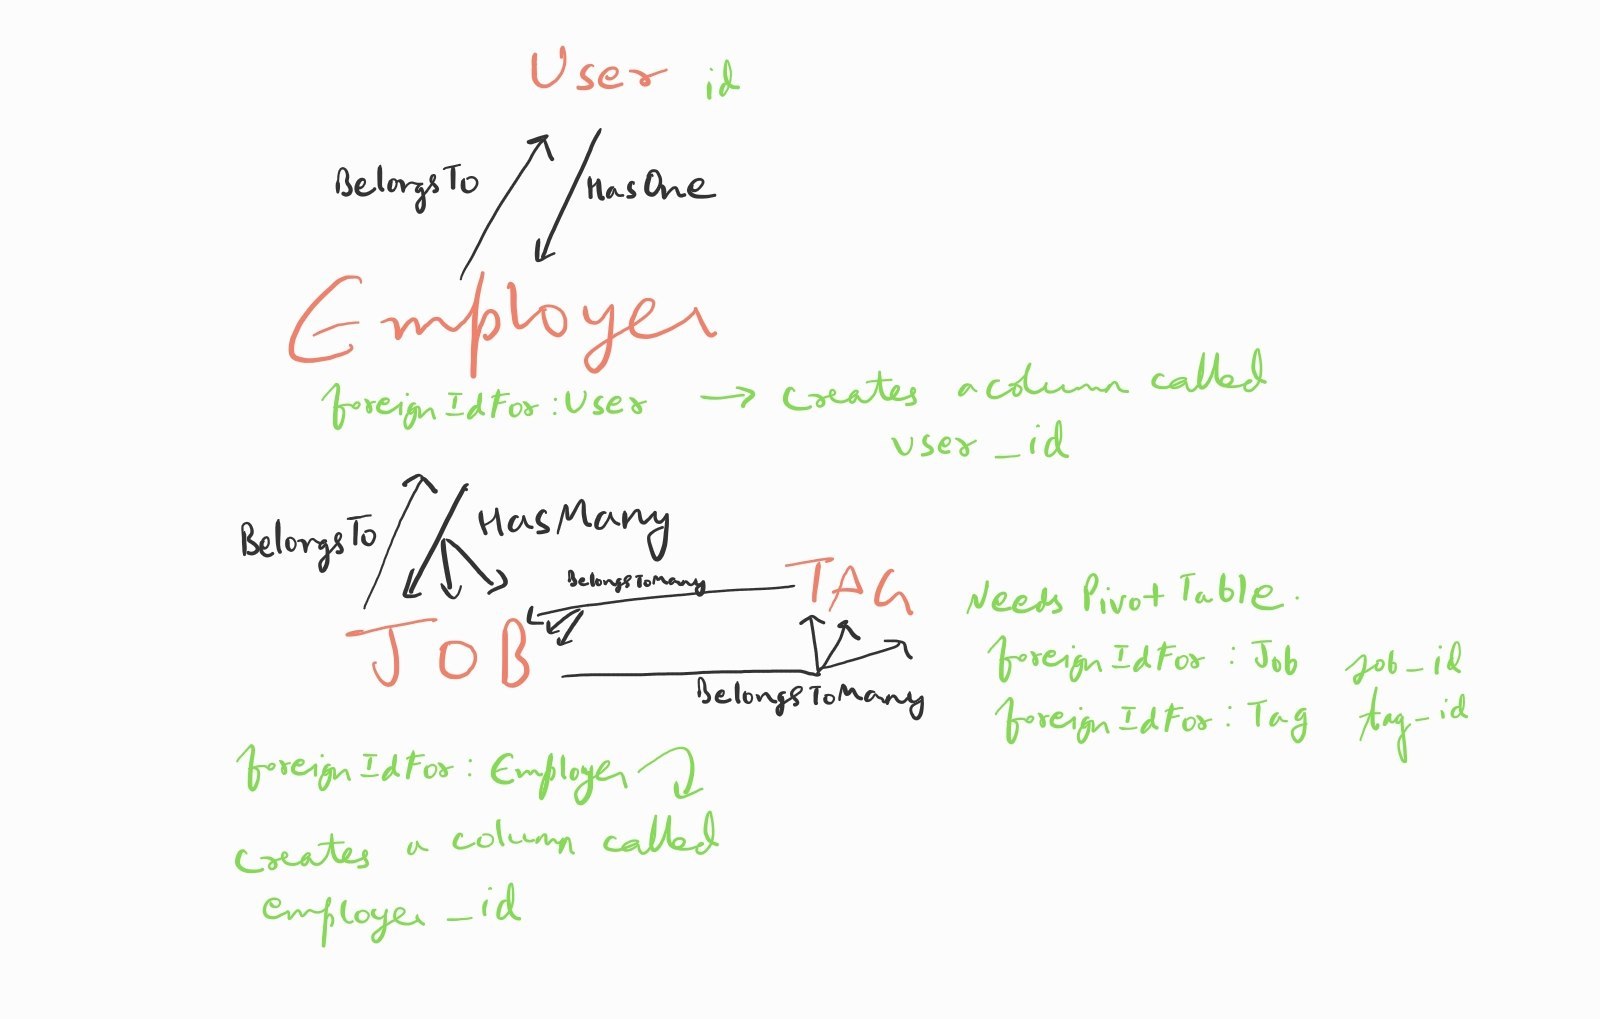 User id
BelongsTo
HasOne
Employer
foreignIdFor:User → creates a column called
user_id
BelongsTo
HasMany
BelongsToMany
TAG
Needs Pivot Table.
JOB
foreignIdFor: Job job_id
BelongsToMany
foreignIdFor: Tag tag_id
foreignIdFor: Employer
creates a column called
employer_id